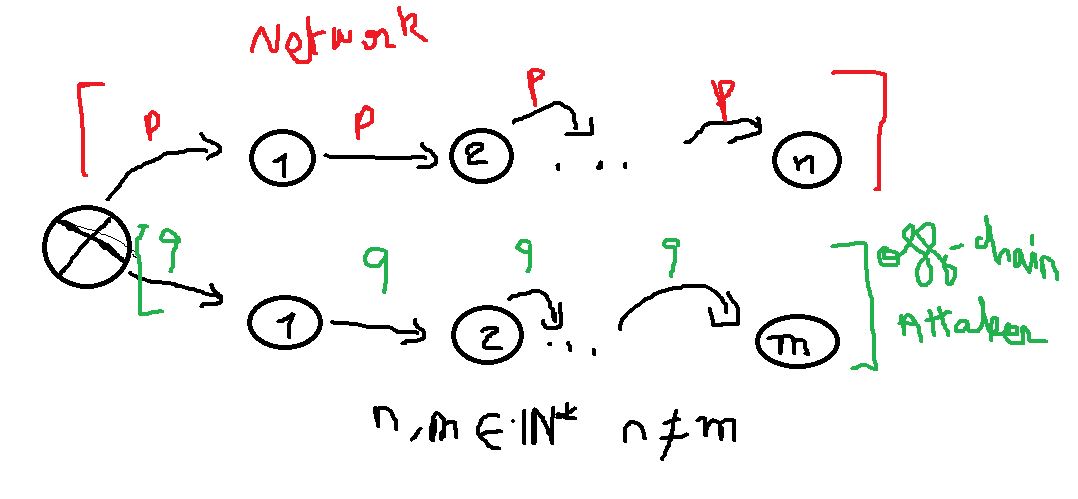 Network
p p p p
1 2 ... n
q q q q
1 2 ... m
off-chain
Attaker
n, m ∈ IN* n ≠ m